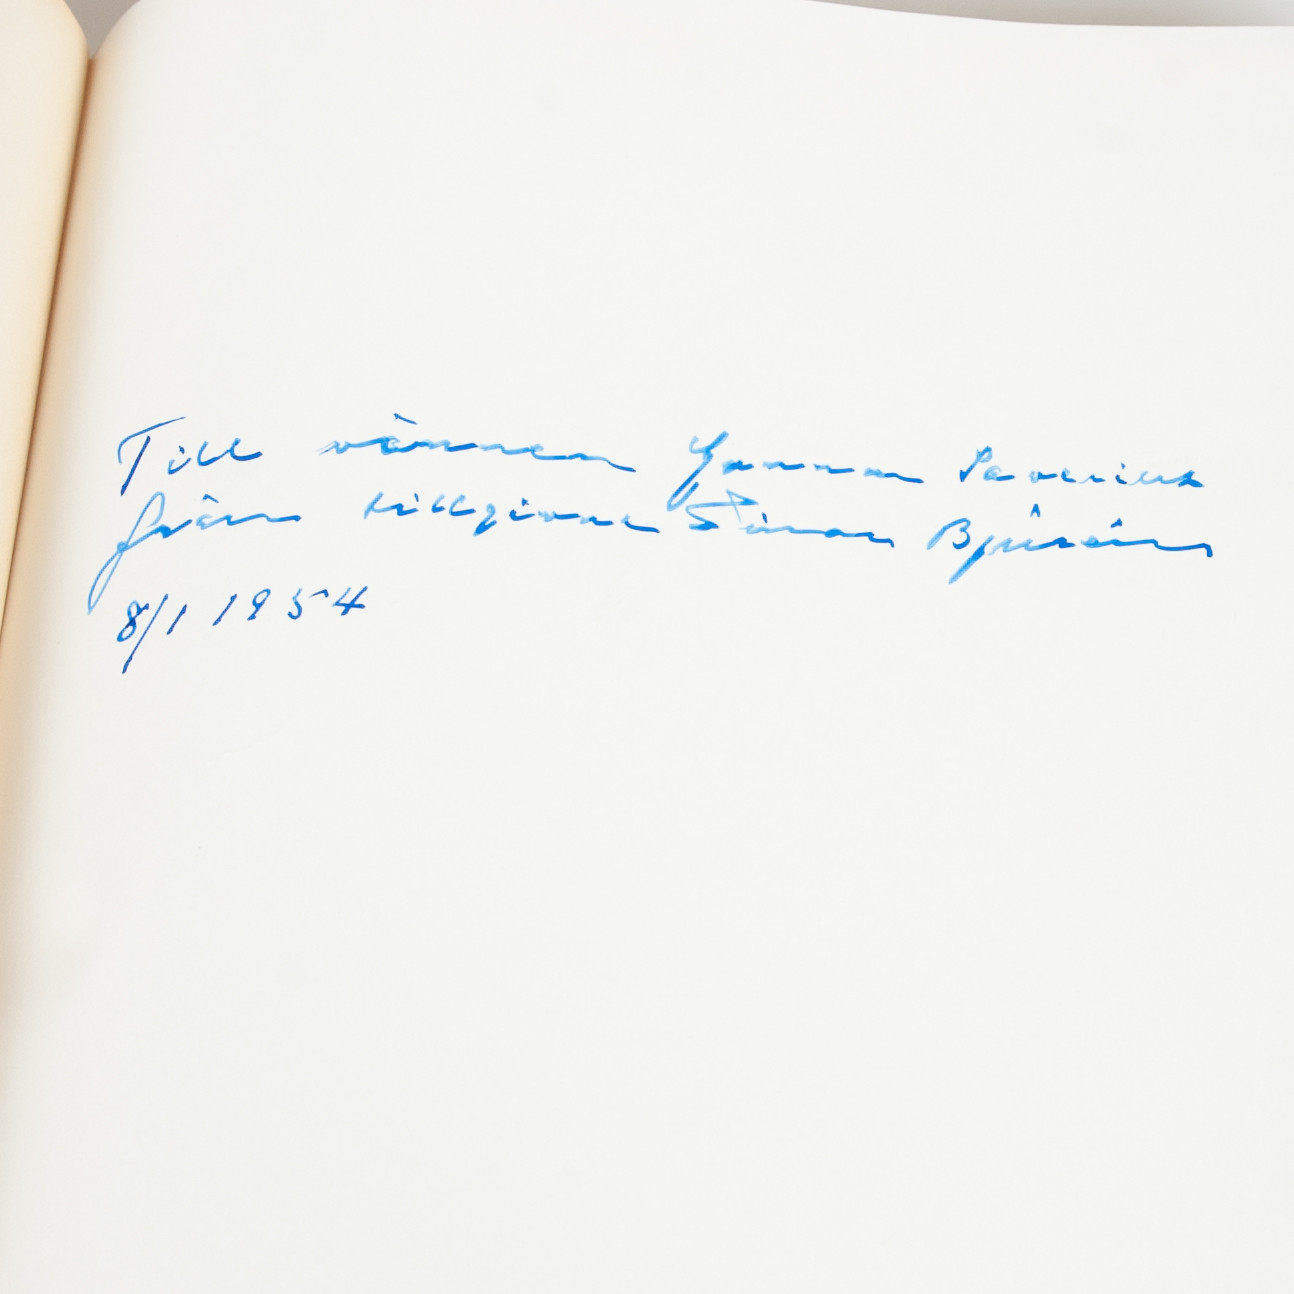 Till vännen Gunnar Saverius
från tillgivne Göran Bjurén
8/1 1954